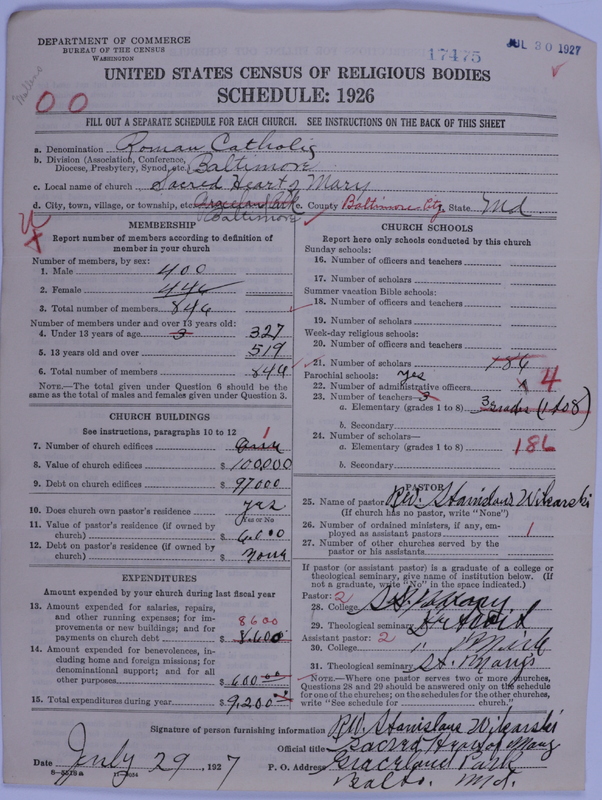 DEPARTMENT OF COMMERCE
BUREAU OF THE CENSUS
WASHINGTON
17475
JUL 30 1927
UNITED STATES CENSUS OF RELIGIOUS BODIES
SCHEDULE: 1926
00
FILL OUT A SEPARATE SCHEDULE FOR EACH CHURCH. SEE INSTRUCTIONS ON THE BACK OF THIS SHEET
a. Denomination Roman Catholic
b. Division (Association, Conference, Diocese, Presbytery, Synod, etc.) Baltimore
c. Local name of church Sacred Heart of Mary
d. City, town, village, or township, etc. Graceland Park e. County Baltimore City State Md
Baltimore
MEMBERSHIP
Report number of members according to definition of
member in your church
Number of members, by sex:
1. Male 400
2. Female 446
3. Total number of members 846
Number of members under and over 13 years old:
4. Under 13 years of age 3 327
5. 13 years old and over 519
6. Total number of members 846
NOTE.—The total given under Question 6 should be the
same as the total of males and females given under Question 3.
CHURCH BUILDINGS
See instructions, paragraphs 10 to 12
7. Number of church edifices 1
8. Value of church edifices $ 100,000
9. Debt on church edifices $ 97000
10. Does church own pastor's residence yes
Yes or No
11. Value of pastor's residence (if owned by
church) $
12. Debt on pastor's residence (if owned by
church) $ None
EXPENDITURES
Amount expended by your church during last fiscal year
13. Amount expended for salaries, repairs,
and other running expenses; for im-
provements or new buildings; and for 8600
payments on church debt $ 8.600
14. Amount expended for benevolences, in-
cluding home and foreign missions; for
denominational support; and for all
other purposes $ 600 00
15. Total expenditures during year $ 9,200
CHURCH SCHOOLS
Report here only schools conducted by this church
Sunday schools:
16. Number of officers and teachers
17. Number of scholars
Summer vacation Bible schools:
18. Number of officers and teachers
19. Number of scholars
Week-day religious schools:
20. Number of officers and teachers
21. Number of scholars 186
Parochial schools: yes
22. Number of administrative officers 4
23. Number of teachers— 3
a. Elementary (grades 1 to 8) 3 grades (1 to 8)
b. Secondary
24. Number of scholars—
a. Elementary (grades 1 to 8) 186
b. Secondary
PASTOR
25. Name of pastor Rev. Stanislaus Wilcarski
(If church has no pastor, write "None")
26. Number of ordained ministers, if any, em-
ployed as assistant pastors 1
27. Number of other churches served by the
pastor or his assistants
If pastor (or assistant pastor) is a graduate of a college or
theological seminary, give name of institution below. (If
not a graduate, write "No" in the space indicated.)
Pastor: 2
28. College
29. Theological seminary
Assistant pastor: 2
30. College " " Mich
31. Theological seminary St. Marys
NOTE.—Where one pastor serves two or more churches,
Questions 28 and 29 should be answered only on the schedule
for one of the churches; on the schedules for the other churches,
write "See schedule for church."
Signature of person furnishing information Rev. Stanislaus Wilcarski
Official title Sacred Heart of Mary
Date July 29, 1927 P. O. Address Graceland Park
8-5518a 11-9054 Balto. Md.